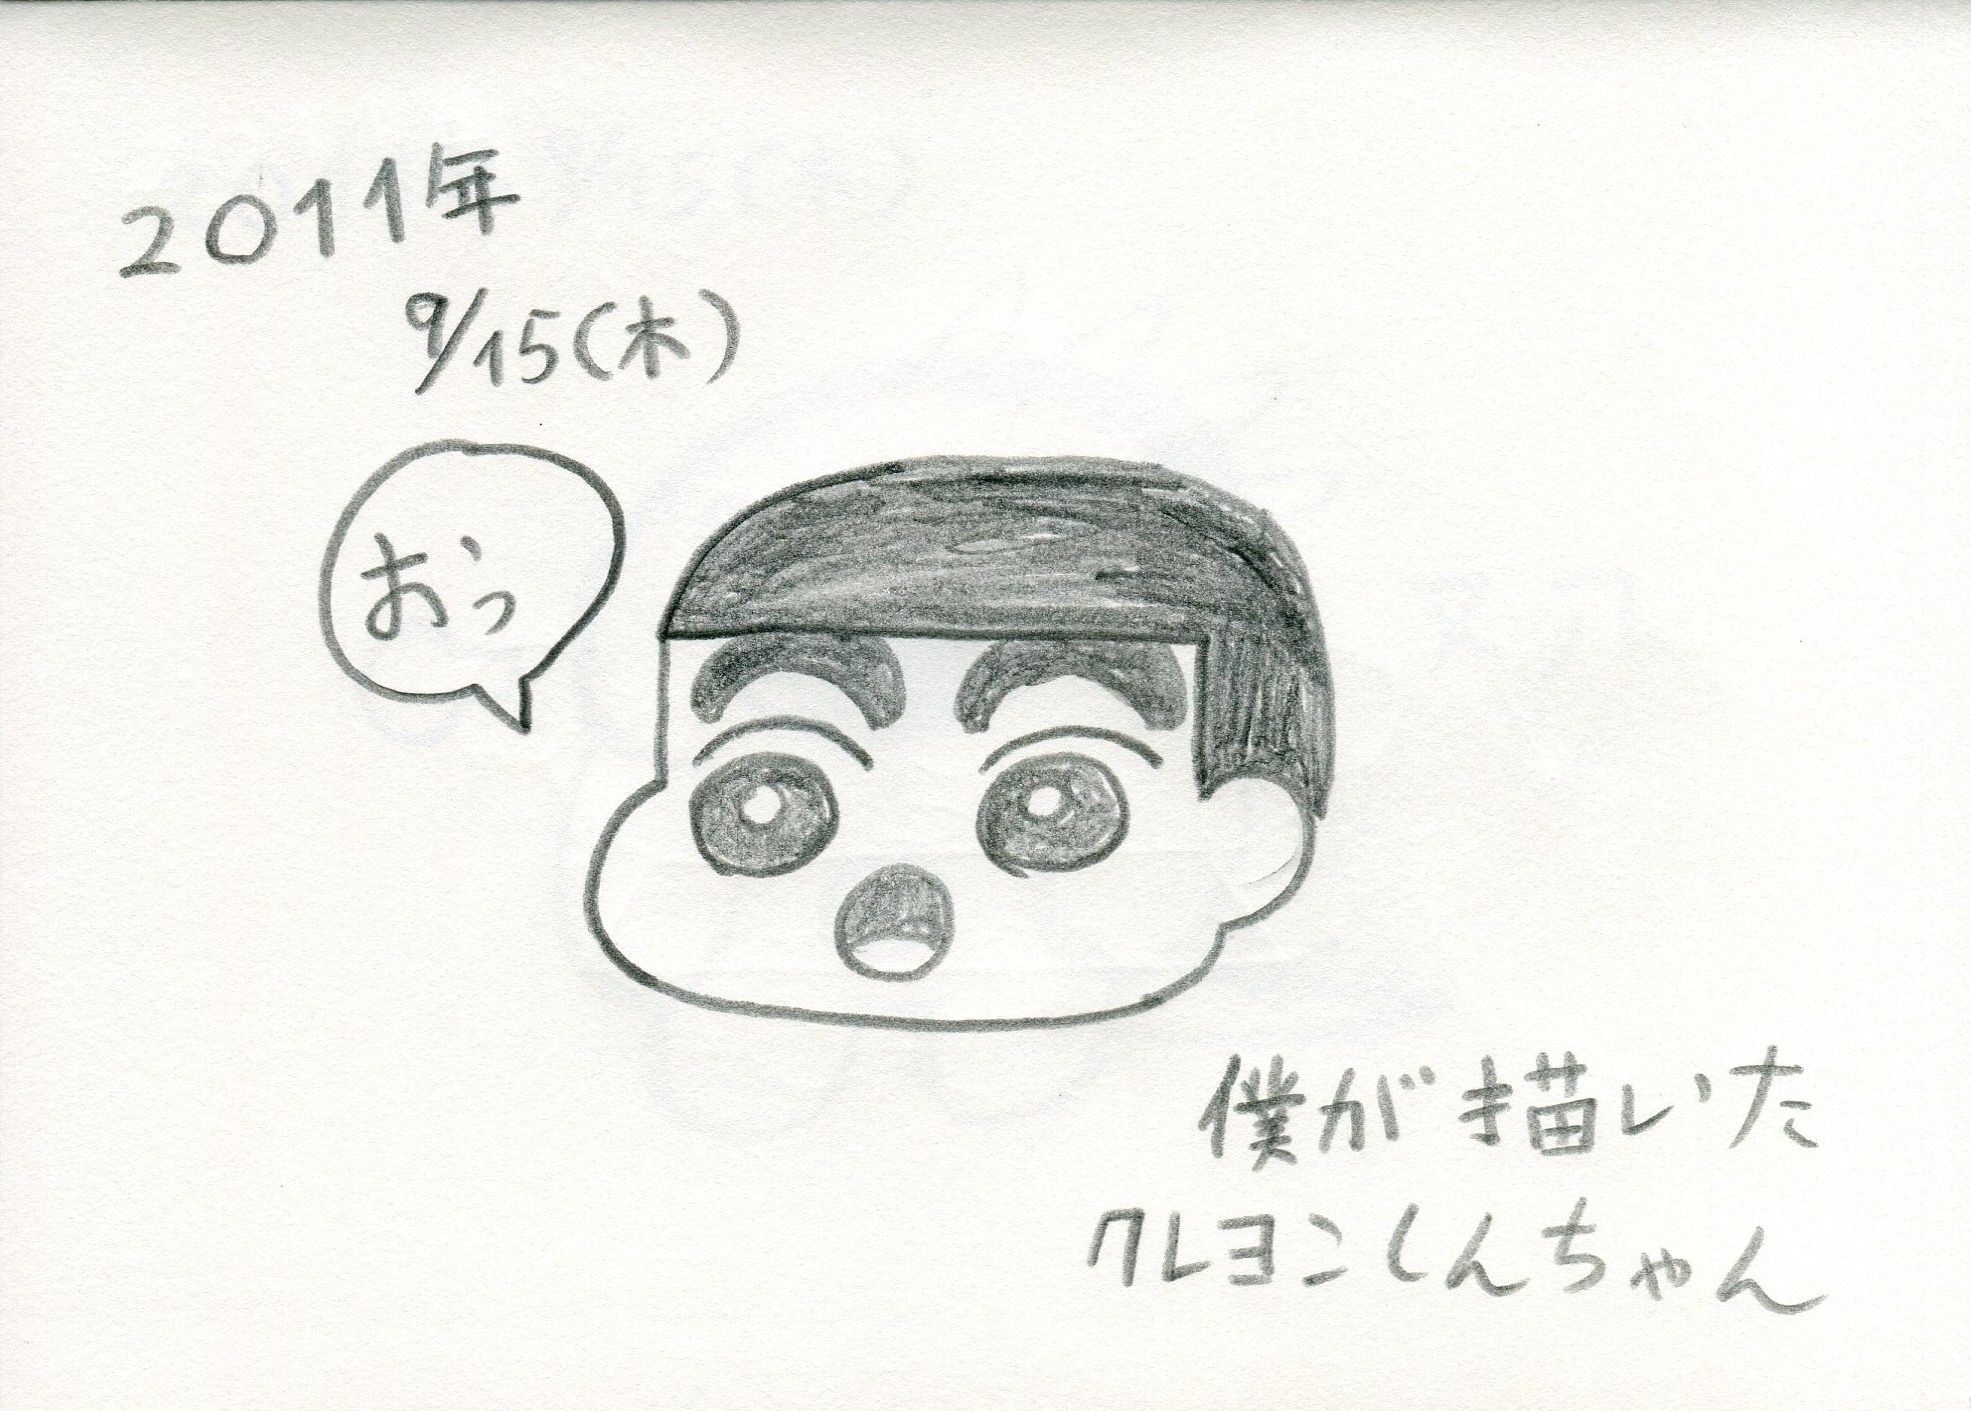 2011年
9/15(木)
おっ
僕が描いた
クレヨンしんちゃん